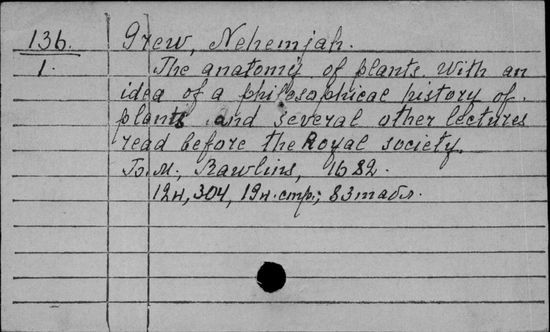 136. Grew, Nehemjah.
1. The anatomy of plants with an
idea of a philosophical history of
plants and several other lectures
read before the Royal society.
M., Rawlins, 1682.
12н, 304, 19н. cmp.; 83